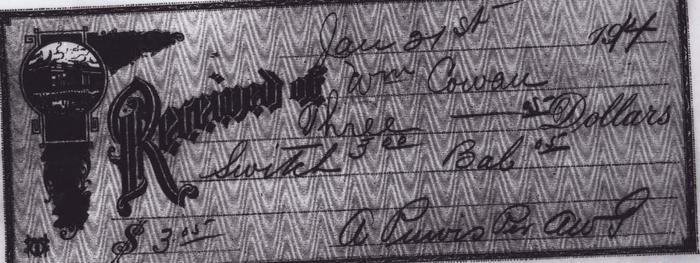 Jan 21st 1914
Received of Wm Cowan
Three 05 Dollars
Switch 3 00 Bal 05
$ 3.05 A Purvis Per